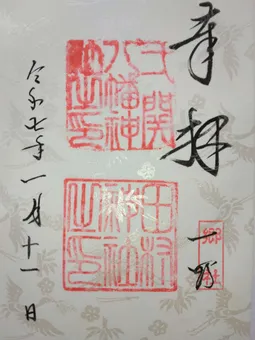 奉拝
郷社
八幡神
社之印
田村
神社
之印
令和七年一月十一日